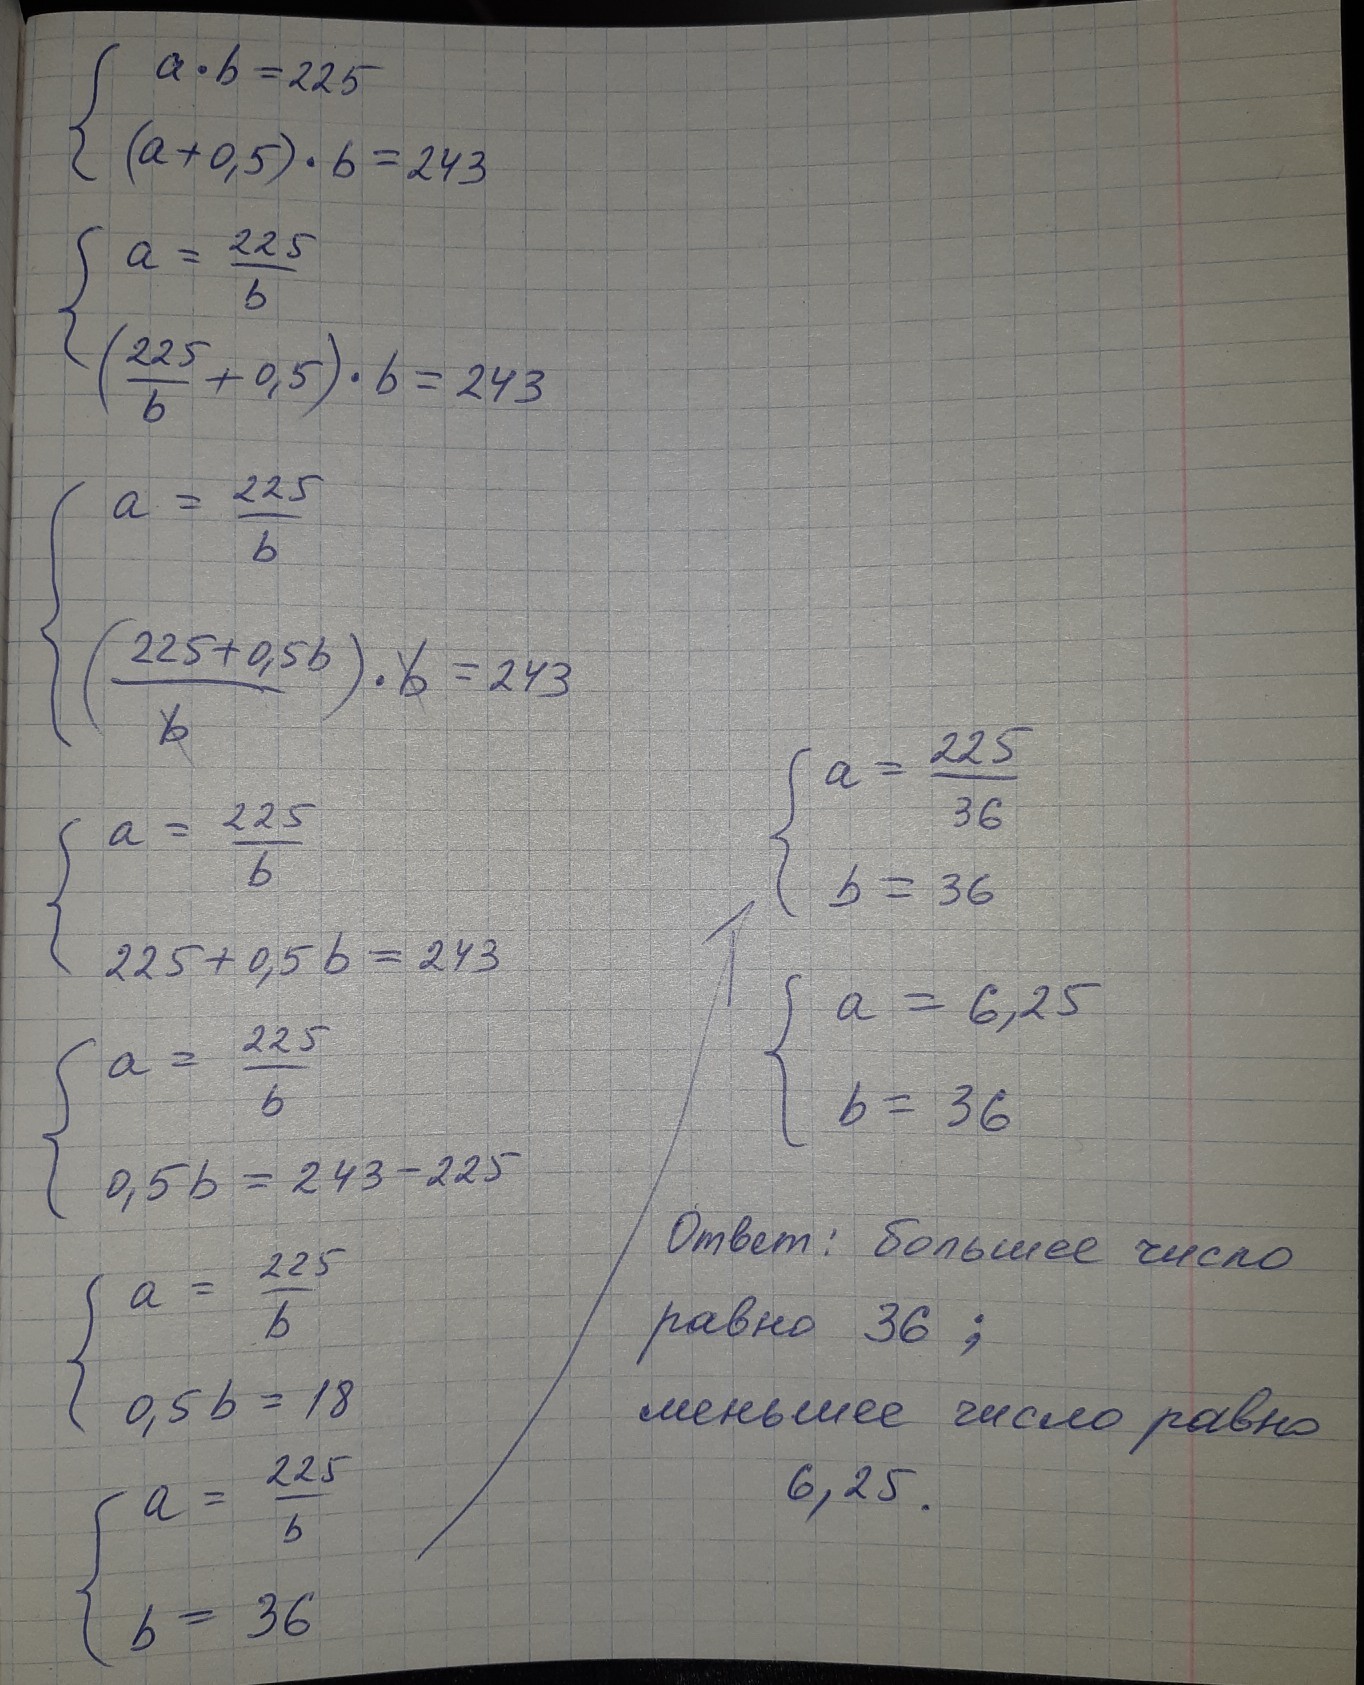 a·b=225
(a+0,5)·b=243
a = 225/b
(225/b+0,5)·b=243
a = 225/b
((225+0,5b)/b)·b=243
a = 225/b
225+0,5b=243
a = 225/b
0,5b=243-225
a = 225/b
0,5b=18
a = 225/b
b = 36
a = 225/36
b = 36
a = 6,25
b = 36
Ответ: большее число
равно 36 ;
меньшее число равно
6,25.